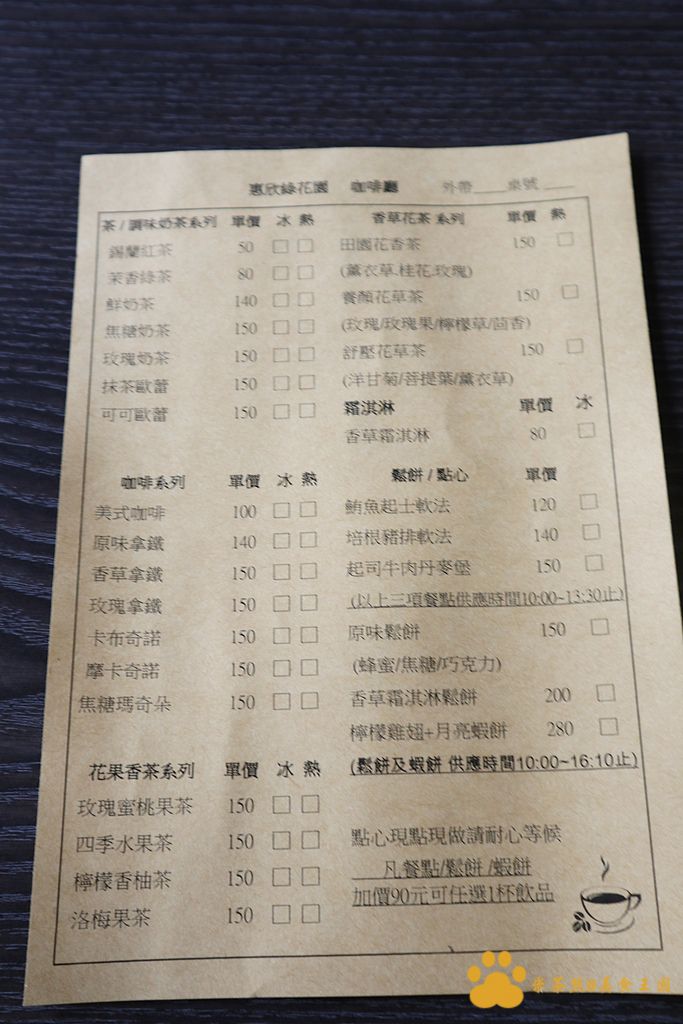 惠欣綠花園 咖啡廳 外帶____桌號____
茶/調味奶茶系列 單價 冰 熱
錫蘭紅茶 50 □ □
茉香綠茶 80 □ □
鮮奶茶 140 □ □
焦糖奶茶 150 □ □
玫瑰奶茶 150 □ □
抹茶歐蕾 150 □ □
可可歐蕾 150 □ □
咖啡系列 單價 冰 熱
美式咖啡 100 □ □
原味拿鐵 140 □ □
香草拿鐵 150 □ □
玫瑰拿鐵 150 □ □
卡布奇諾 150 □ □
摩卡奇諾 150 □ □
焦糖瑪奇朵 150 □ □
花果香茶系列 單價 冰 熱
玫瑰蜜桃果茶 150 □ □
四季水果茶 150 □ □
檸檬香柚茶 150 □ □
洛梅果茶 150 □ □
香草花茶 系列 單價 熱
田園花香茶 150 □
(薰衣草.桂花.玫瑰)
養顏花草茶 150 □
(玫瑰/玫瑰果/檸檬草/茴香)
舒壓花草茶 150 □
(洋甘菊/菩提葉/薰衣草)
霜淇淋 單價 冰
香草霜淇淋 80 □
鬆餅/點心 單價
鮪魚起士軟法 120 □
培根豬排軟法 140 □
起司牛肉丹麥堡 150 □
(以上三項餐點供應時間10:00~13:30止)
原味鬆餅 150 □
(蜂蜜/焦糖/巧克力)
香草霜淇淋鬆餅 200 □
檸檬雞翅+月亮蝦餅 280 □
(鬆餅及蝦餅 供應時間10:00~16:10止)
點心現點現做請耐心等候
凡餐點/鬆餅 /蝦餅
加價90元可任選1杯飲品